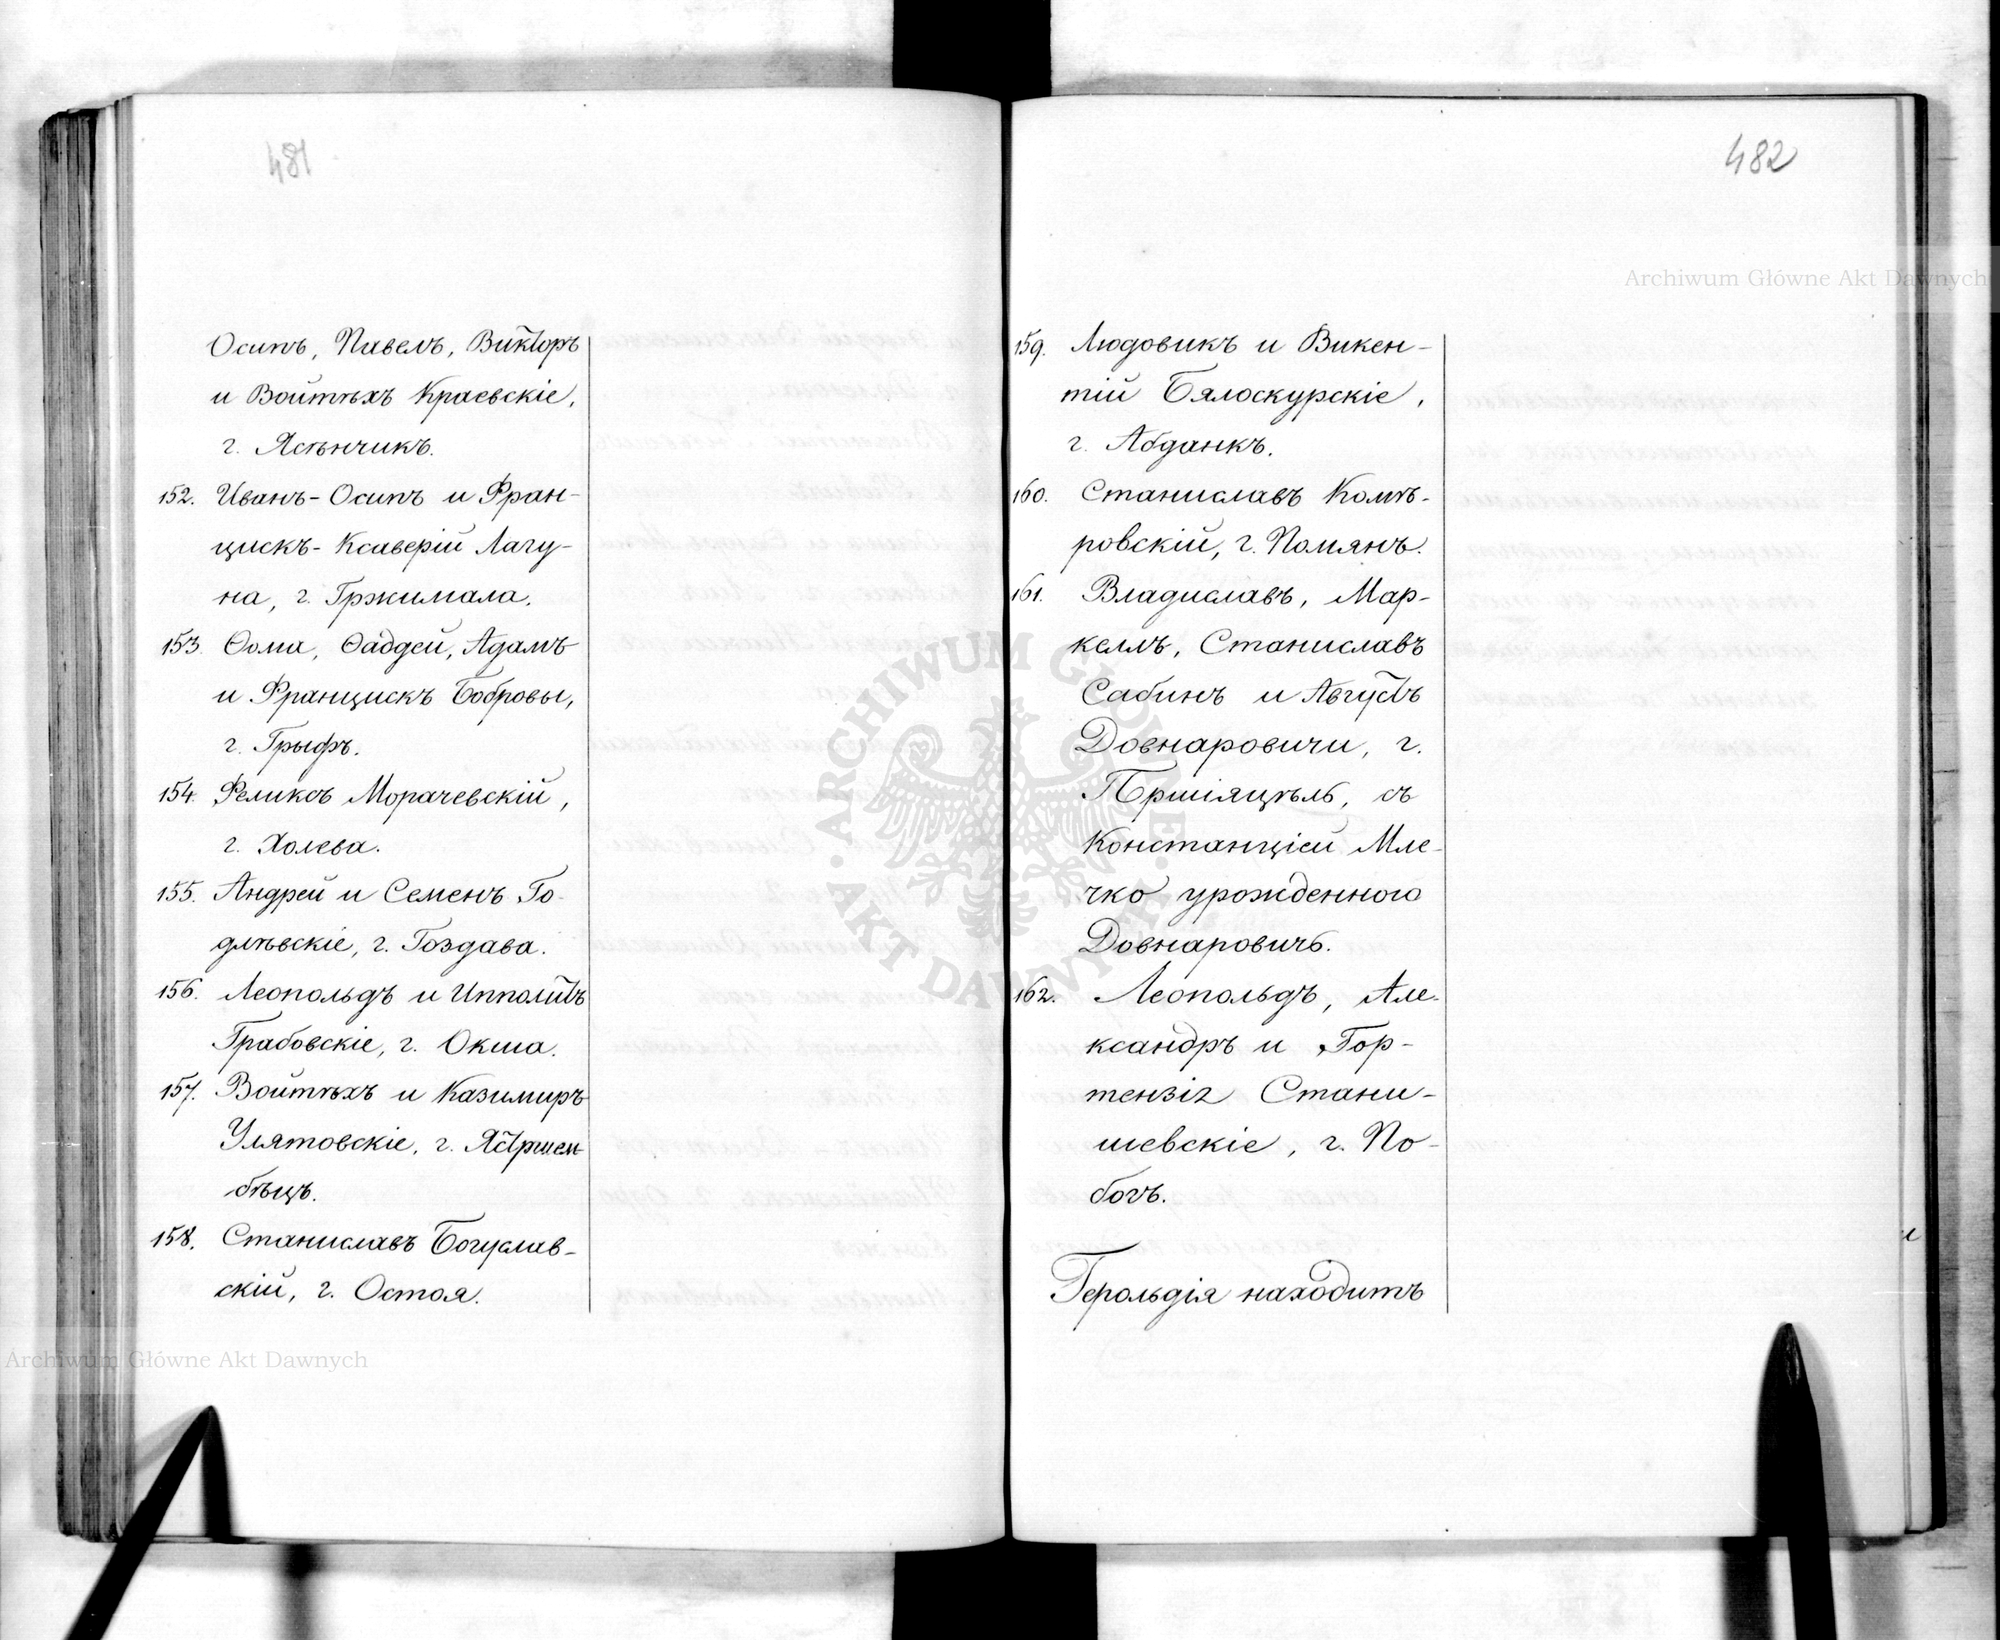 481
Осипъ, Павелъ, Викторъ
и Войтѣхъ Краевскіе,
г. Ясѣнчикъ.
152. Иванъ-Осипъ и Фран-
цискъ-Ксаверій Лагу-
на, г. Гржимала.
153. Ѳома, Ѳаддей, Адамъ
и Францискъ Бобровы,
г. Грыфъ.
154. Феликсъ Морачевскій,
г. Холева.
155. Андрей и Семенъ Го-
длѣвскіе, г. Гоздава.
156. Леопольдъ и Ипполитъ
Грабовскіе, г. Окша.
157. Войтѣхъ и Казимиръ
Улятовскіе, г. Ястршем-
бѣцъ.
158. Станиславъ Богуслав-
скій, г. Остоя.
482
159. Людовикъ и Викен-
тій Бялоскурскіе,
г. Абданкъ.
160. Станиславъ Комѣ-
ровскій, г. Помянъ.
161. Владиславъ, Мар-
келлъ, Станиславъ
Сабинъ и Августъ
Довнаровичи, г.
Пршіяцѣль, съ
Констанціей Мле-
чко урожденного
Довнаровичъ.
162. Леопольдъ, Але-
ксандръ и Гор-
тензія Стани-
шевскіе, г. По-
богъ.
Герольдія находитъ
и
Archiwum Główne Akt Dawnych
Archiwum Główne Akt Dawnych
ARCHIWUM GŁÓWNE AKT DAWNYCH